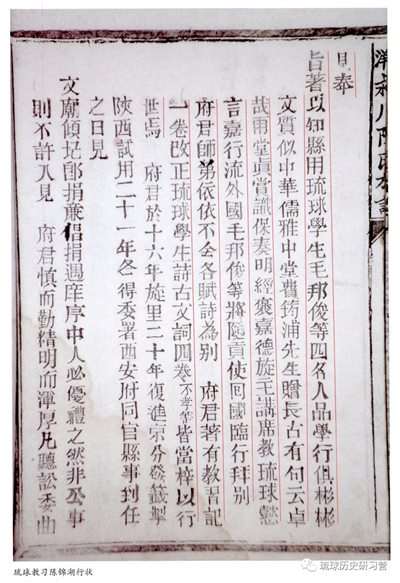 日奉
旨著以知縣用琉球學生毛邦俊等四名人品學行俱彬彬
文質似中華儒雅中堂費筠浦先生贈長古有句云卓
哉雨堂眞賞識保奏明經褒嘉德旋主講席教琉球懿
言嘉行流外國毛邦俊等將隨貢使回國臨行拜別
府君師弟依依不舍各賦詩爲別　府君著有教習記
一卷改正琉球學生詩古文詞四卷不孝等皆當梓以行
世焉　府君於十六年旋里二十年復進京分發籤掣
陝西試用二十一年冬得委署西安府同官縣事到任
之日見
文廟傾圮卽捐廉倡捐遇庠序中人必優禮之然非公事
則不許入見　府君慎而勤精明而渾厚凡聽訟委曲
琉球教习陈锦湖行状
琉球历史研习营